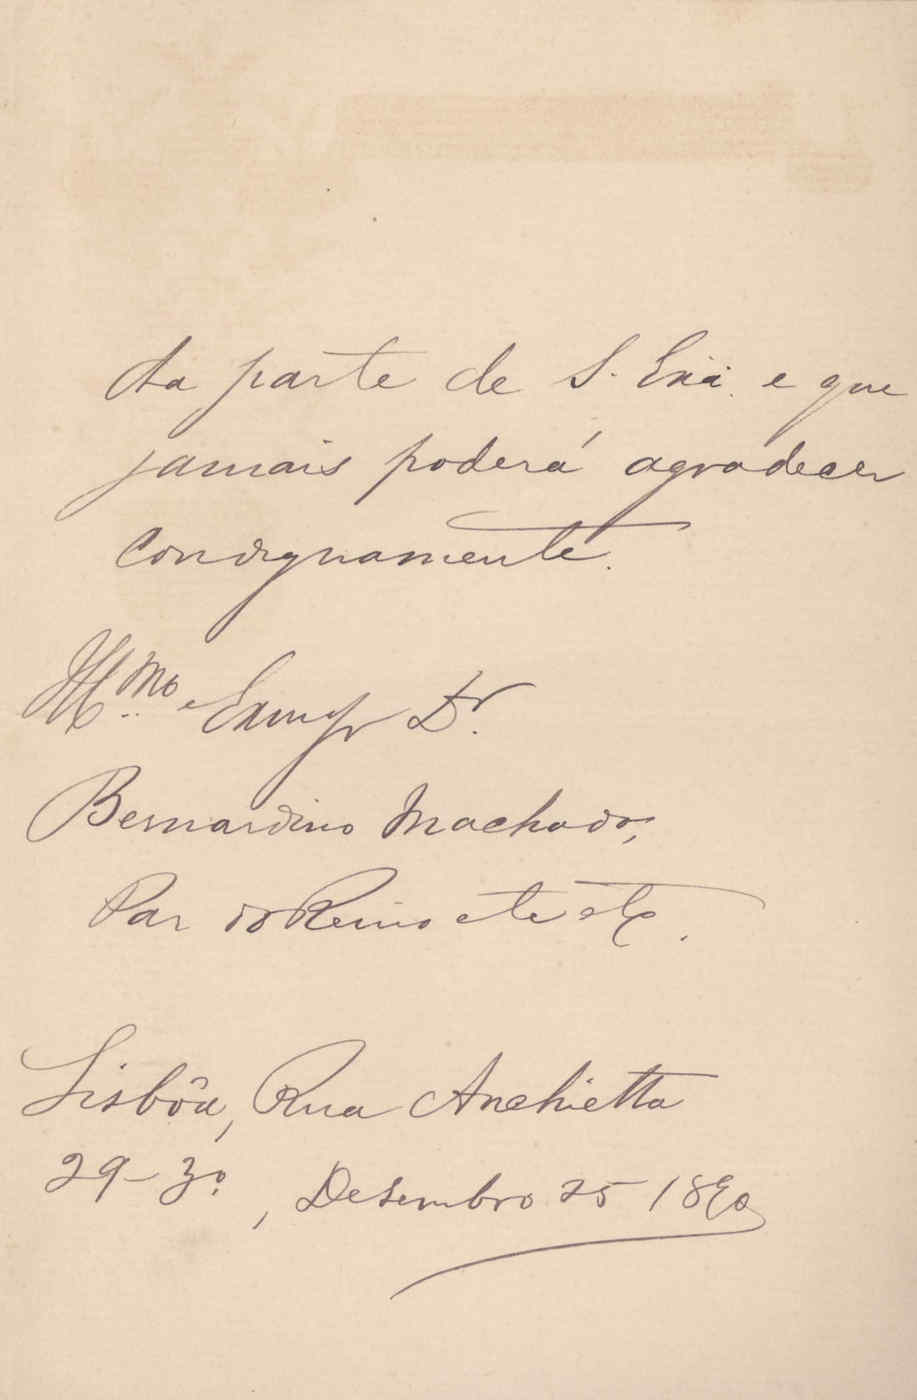 da parte de S. Exia. e que
jamais poderá agradecer
condignamente.
Illmo. e Exmo Sr Dr.
Bernardino Machado,
Par do Reino etc etc.
Lisbôa, Rua Anchietta
29-3º, Desembro 25 1890